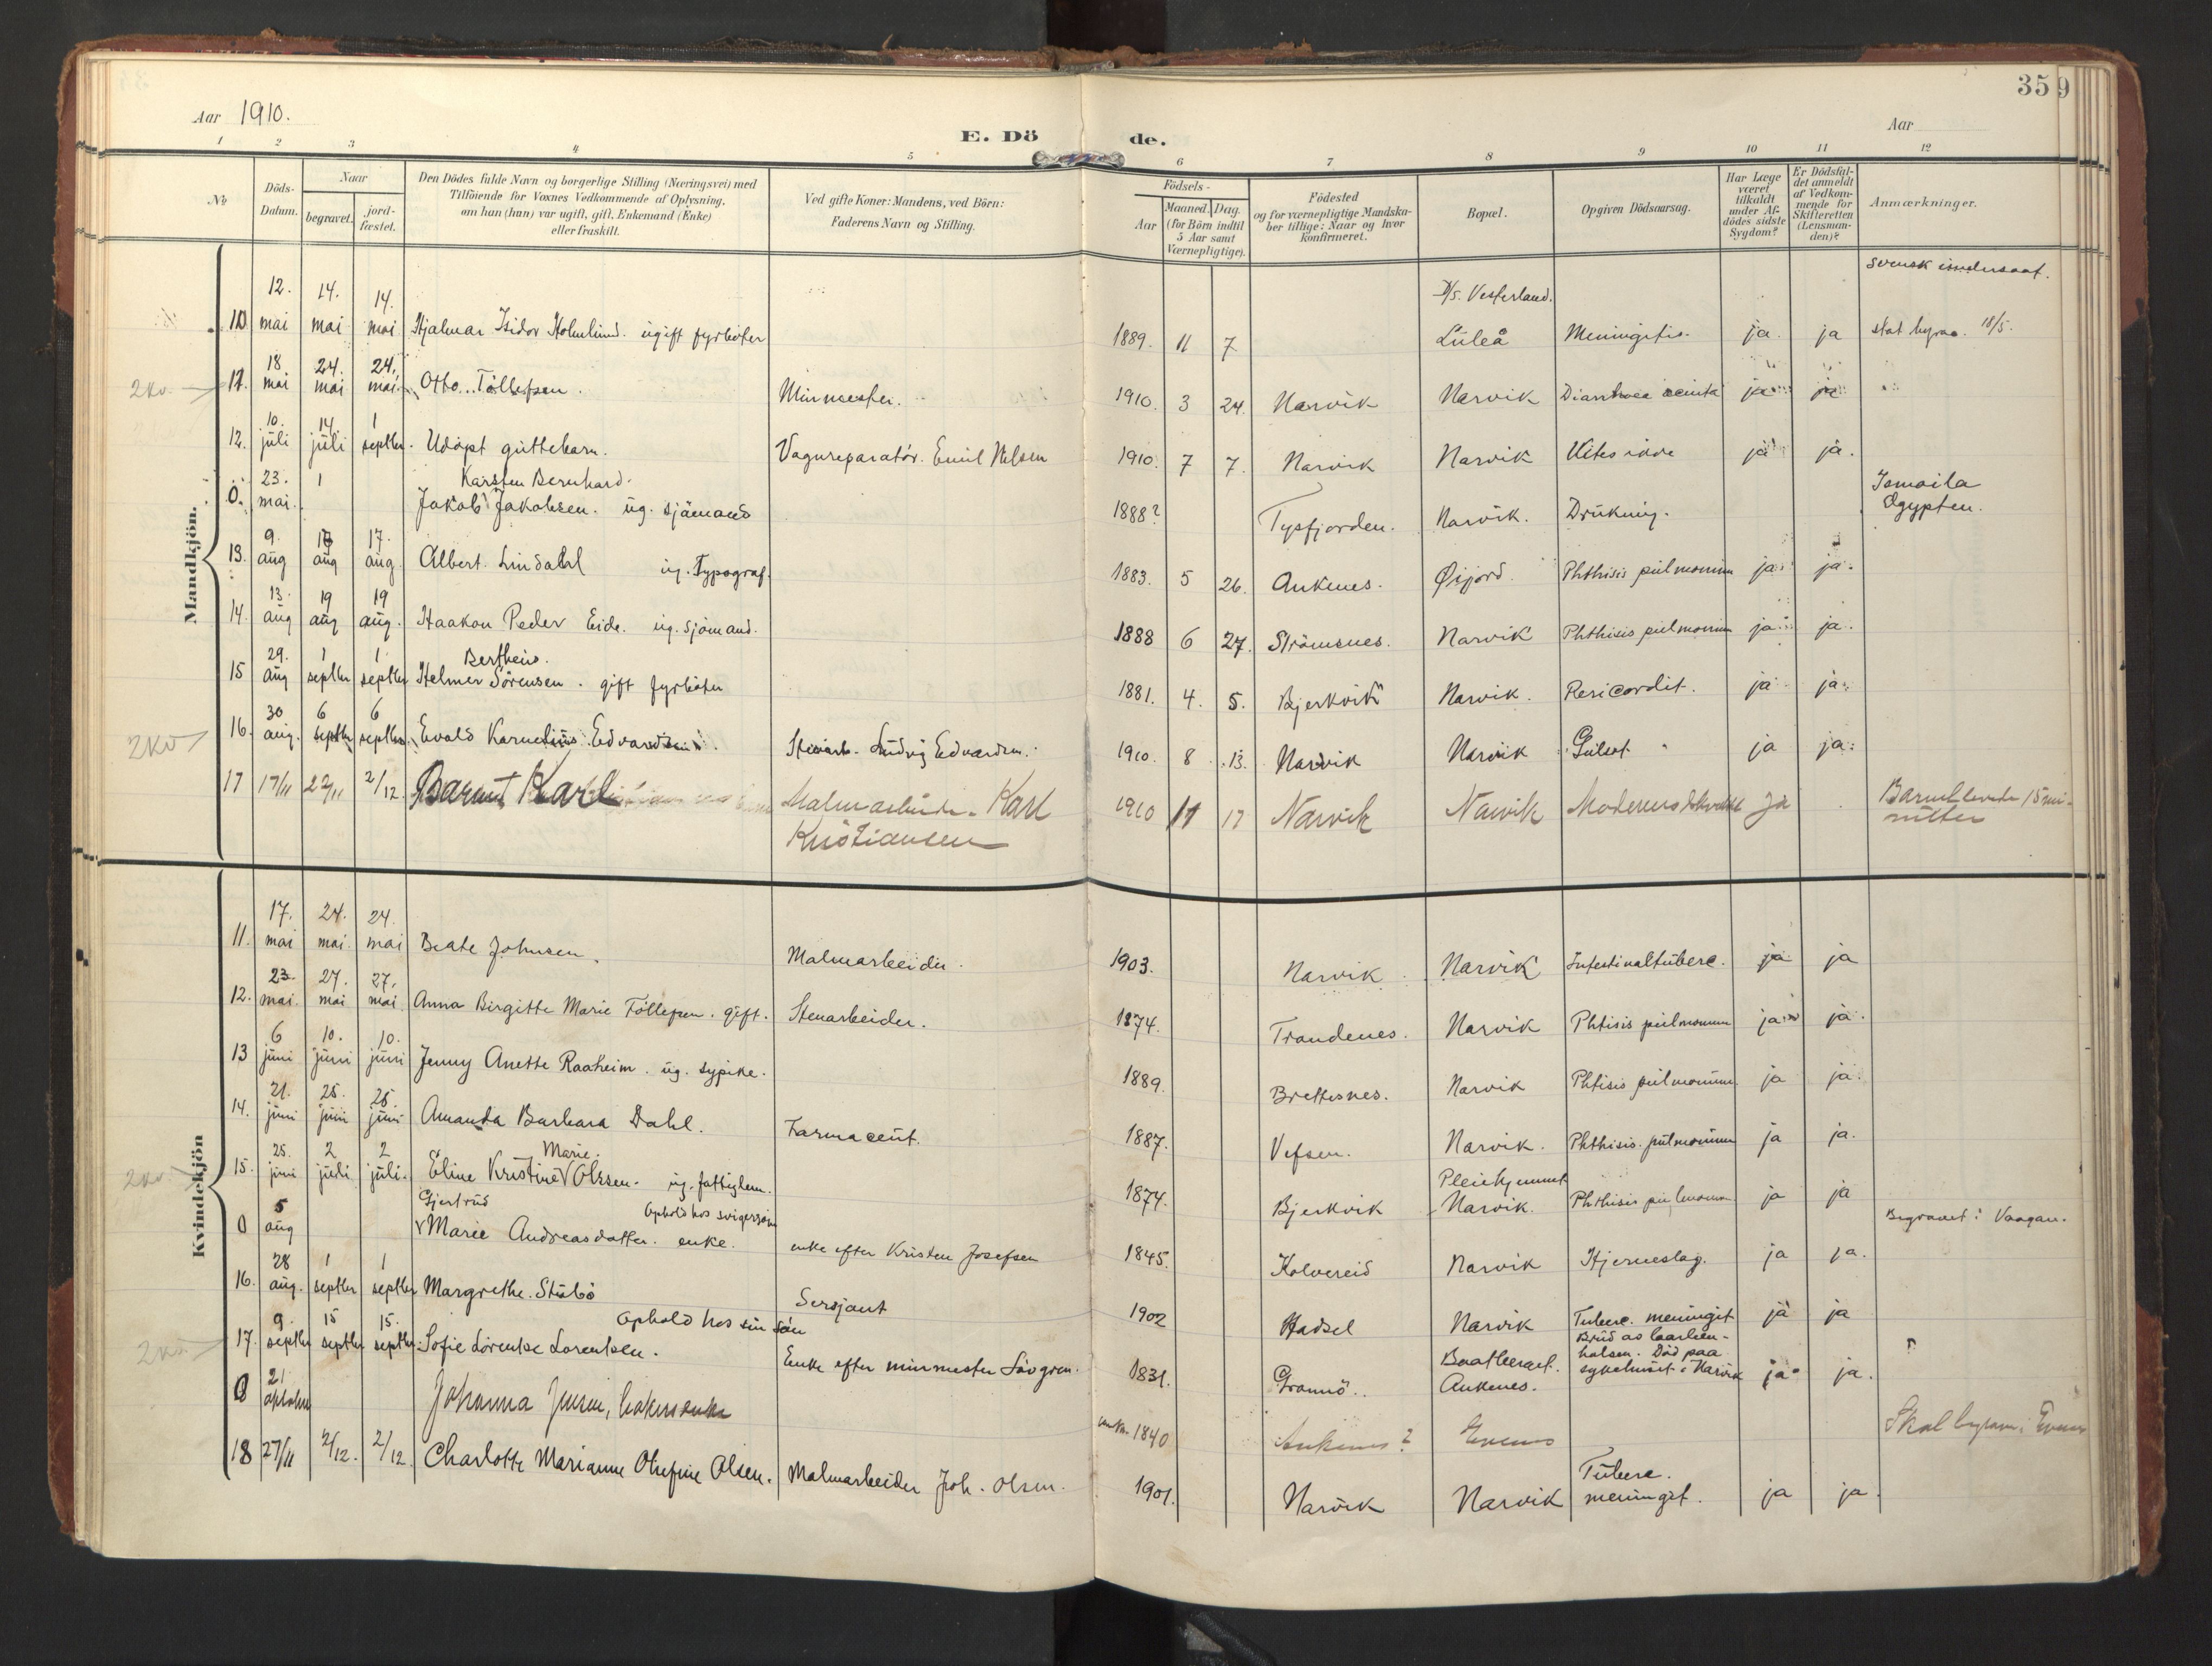 359
Aar 1910.
E. Dö de.
Aar
1 2 3 4 5 6 7 8 9 10 11 12
No
Döds-Datum.
Naar
begravet.
jord-fæstet.
Den Dödes fulde Navn og borgerlige Stilling (Næringsvei) med
Tilföiende for Voxnes Vedkommende af Oplysning,
om han (hun) var ugift, gift, Enkemand (Enke)
eller fraskilt.
Ved gifte Koner: Mandens, ved Börn:
Faderens Navn og Stilling.
Födsels-
Aar
Maaned. Dag.
(for Börn indtil
5 Aar samt
Værnepligtige).
Födested
og for værnepligtige Mandska-
ber tillige: Naar og hvor
konfirmeret.
Bopæl.
Opgiven Dödsaarsag.
Har Læge
været
tilkaldt
under Af-
dödes sidste
Sygdom?
Er Dödsfal-
det anmeldt
af Vedkom-
mende for
Skifteretten
(Lensman-
den)?
Anmærkninger.
Mandkjön.
10. 12. mai 14. mai 14. mai Hjalmar Isidor Holmlund. ugift fyrböter 1889. 11 7 D/S. Vesterland. Luleå Meningitis. ja. ja svensk undersaat. 18/5.
2 kv. 11. 18 mai 24. mai 24. mai. Otto Tollefsen. Minmester. 1910. 3 24. Narvik Narvik Diarrhoea acuta ja ja
12. 10. juli 14. juli 1 septbr. Udöpt guttebarn. Vognreparatör. Emil Nilsen 1910. 7 7. Narvik Narvik ja ja.
0. 23. mai. Karsten Bernhard. Jakob Jakobsen. ug. sjömand 1888? Tysfjorden. Narvik. Drukning. Ismaila Egypten.
13. 9. aug 17 aug 17. aug. Albert Lindahl ug. Typograf. 1883. 5 26. Ankenes. Øijord. Phthisis pulmonum ja ja.
14. 13. aug 19 aug 19 aug. Haakon Peder Eide. ug. sjömand. 1888 6 27. Strömsnes. Narvik Phthisis pulmonum ja ja.
15 29. aug 1 septbr 1 septbr Bertheus. Helmer Sörensen. gift fyrböter 1881. 4. 5. Bjerkvik Narvik. Pericordit. ja ja.
2 kv 16. 30 aug. 6 septbr 6 septbr. Evald Kornelius Edvardsen. Stenarb. Ludvig Edvardsen. 1910. 8 13. Narvik Narvik Gulsot ja ja.
17 17/11 22/11 2/12. Karl Malmarbeider Karl Kristiansen 1910 11 17 Narvik Narvik ja Barnet levede 15 mi-nutter
Kvindekjön
11. 17. mai 24. mai. 24. mai Beate Johnsen. Malmarbeider. 1903. Narvik. Narvik Intestinaltuberc. ja ja
12. 23. mai. 27. mai 27. mai Anna Birgitte Marie Tollefsen. gift. Stenarbeider. 1874. Trondenes. Narvik Phtisis pulmonum ja ja.
13 6 juni 10. juni 10. juni Jenny Anette Raaheim. ug. sypike. 1889. Brettesnes. Narvik Phtisis pulmonum ja ja.
14. 21. juni 25. juni 25. juni Amanda Barbara Dahl. Farmaceut. 1887. Vefsen. Narvik. Phthisis pulmonum ja ja.
2 kv. 15. 25. juni 2 juli 2 juli. Eline Kristine Marie. Olsen. ug. fattiglem. 1874. Bjerkvik Pleiehjemmet Narvik. Phthisis pulmonum ja ja
0 5 aug Gjertrud Marie Andreasdatter. enke. Ophold hos svigersön enke efter Kristen Josefsen 1845. Kolvereid Narvik Hjerneslag. ja ja. Begravet i Vaagan.
16. 28 aug. 1 septbr 1 septbr Margrethe Stubö Sersjant 1902 Hadsel Narvik Tuberc. meningit ja ja
2 kv 17. 9. septbr 15 septbr 15. septbr. Sofie Lorentse Lorentsen. Ophold hos sin sön Enke efter minmester Lövgren. 1831. Boatberget. Ankenes. Brud av laarben-halsen. Död paa sykehuset i Narvik ja ja.
0 21 oktober Johanna Jensen, 1840 Ankenes? Evenes Skal begrav. i Evenes
18 27/11 2/12. 2/12. Charlotte Marianne Olufine Olsen. Malmarbeider Joh. Olsen. 1901. Narvik Narvik Tuberc. meningit. ja ja.